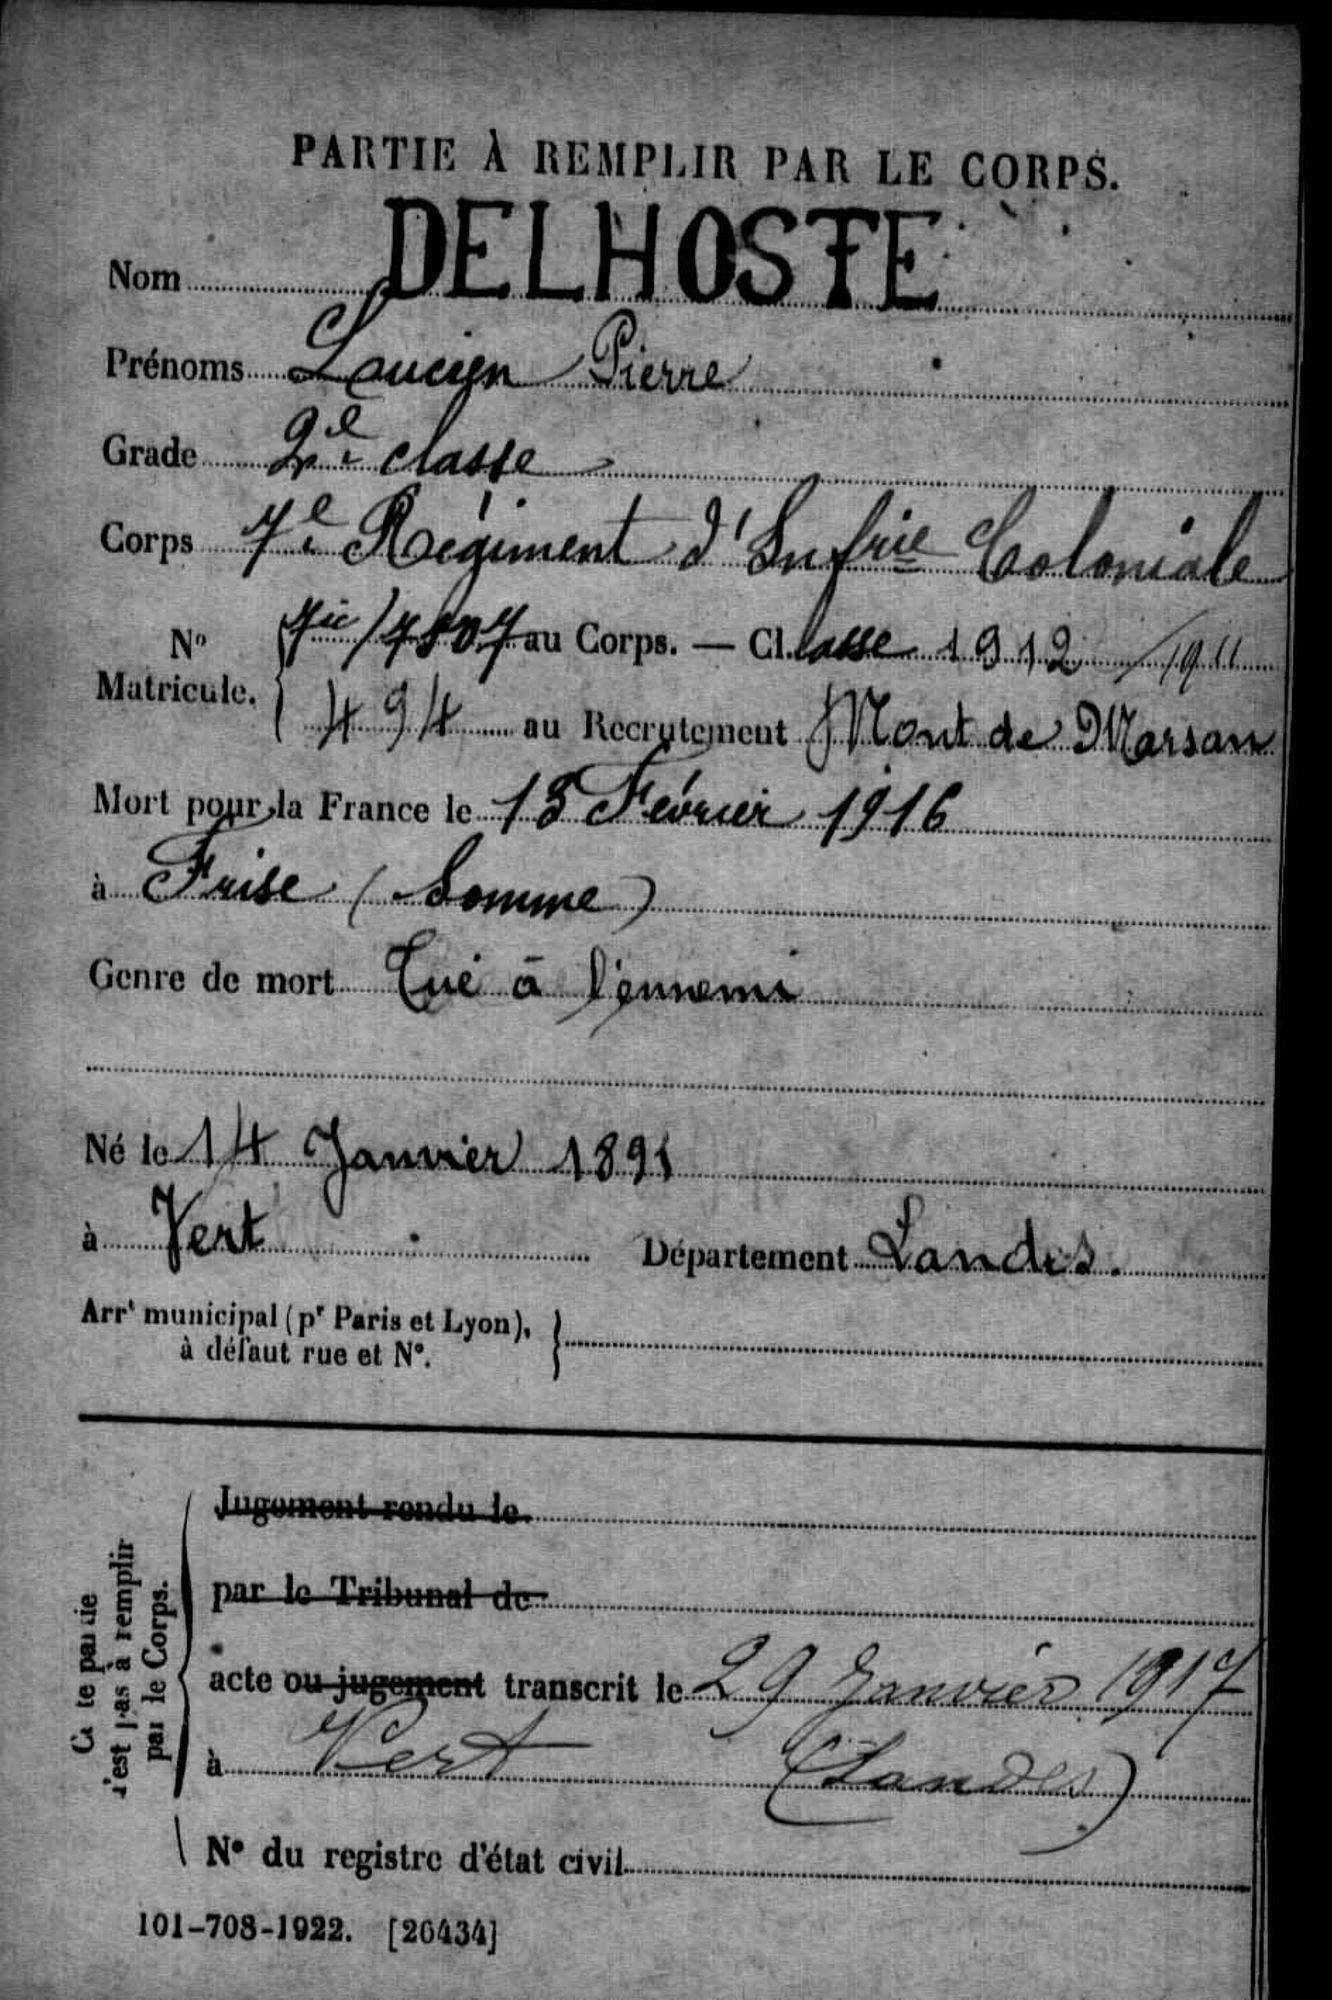 PARTIE À REMPLIR PAR LE CORPS.
Nom DELHOSTE
Prénoms Laucien Pierre
Grade 2e classe
Corps 7e Régiment d'Infrie Coloniale
No Matricule. 7ic/7807 au Corps. — Cl. asse 1912 / 1911
494 au Recrutement Mont de Marsan
Mort pour la France le 13 Février 1916
à Frise (Somme)
Genre de mort Tué à l'ennemi
Né le 14 Janvier 1891
à Vert Département Landes.
Arrt municipal (pr Paris et Lyon),
à défaut rue et N°.
Jugement rendu le
par le Tribunal de
acte ou jugement transcrit le 29 Janvier 1917
à Vert (Landes)
N° du registre d'état civil
Cette partie
n'est pas à remplir
par le Corps.
101-708-1922. [26434]